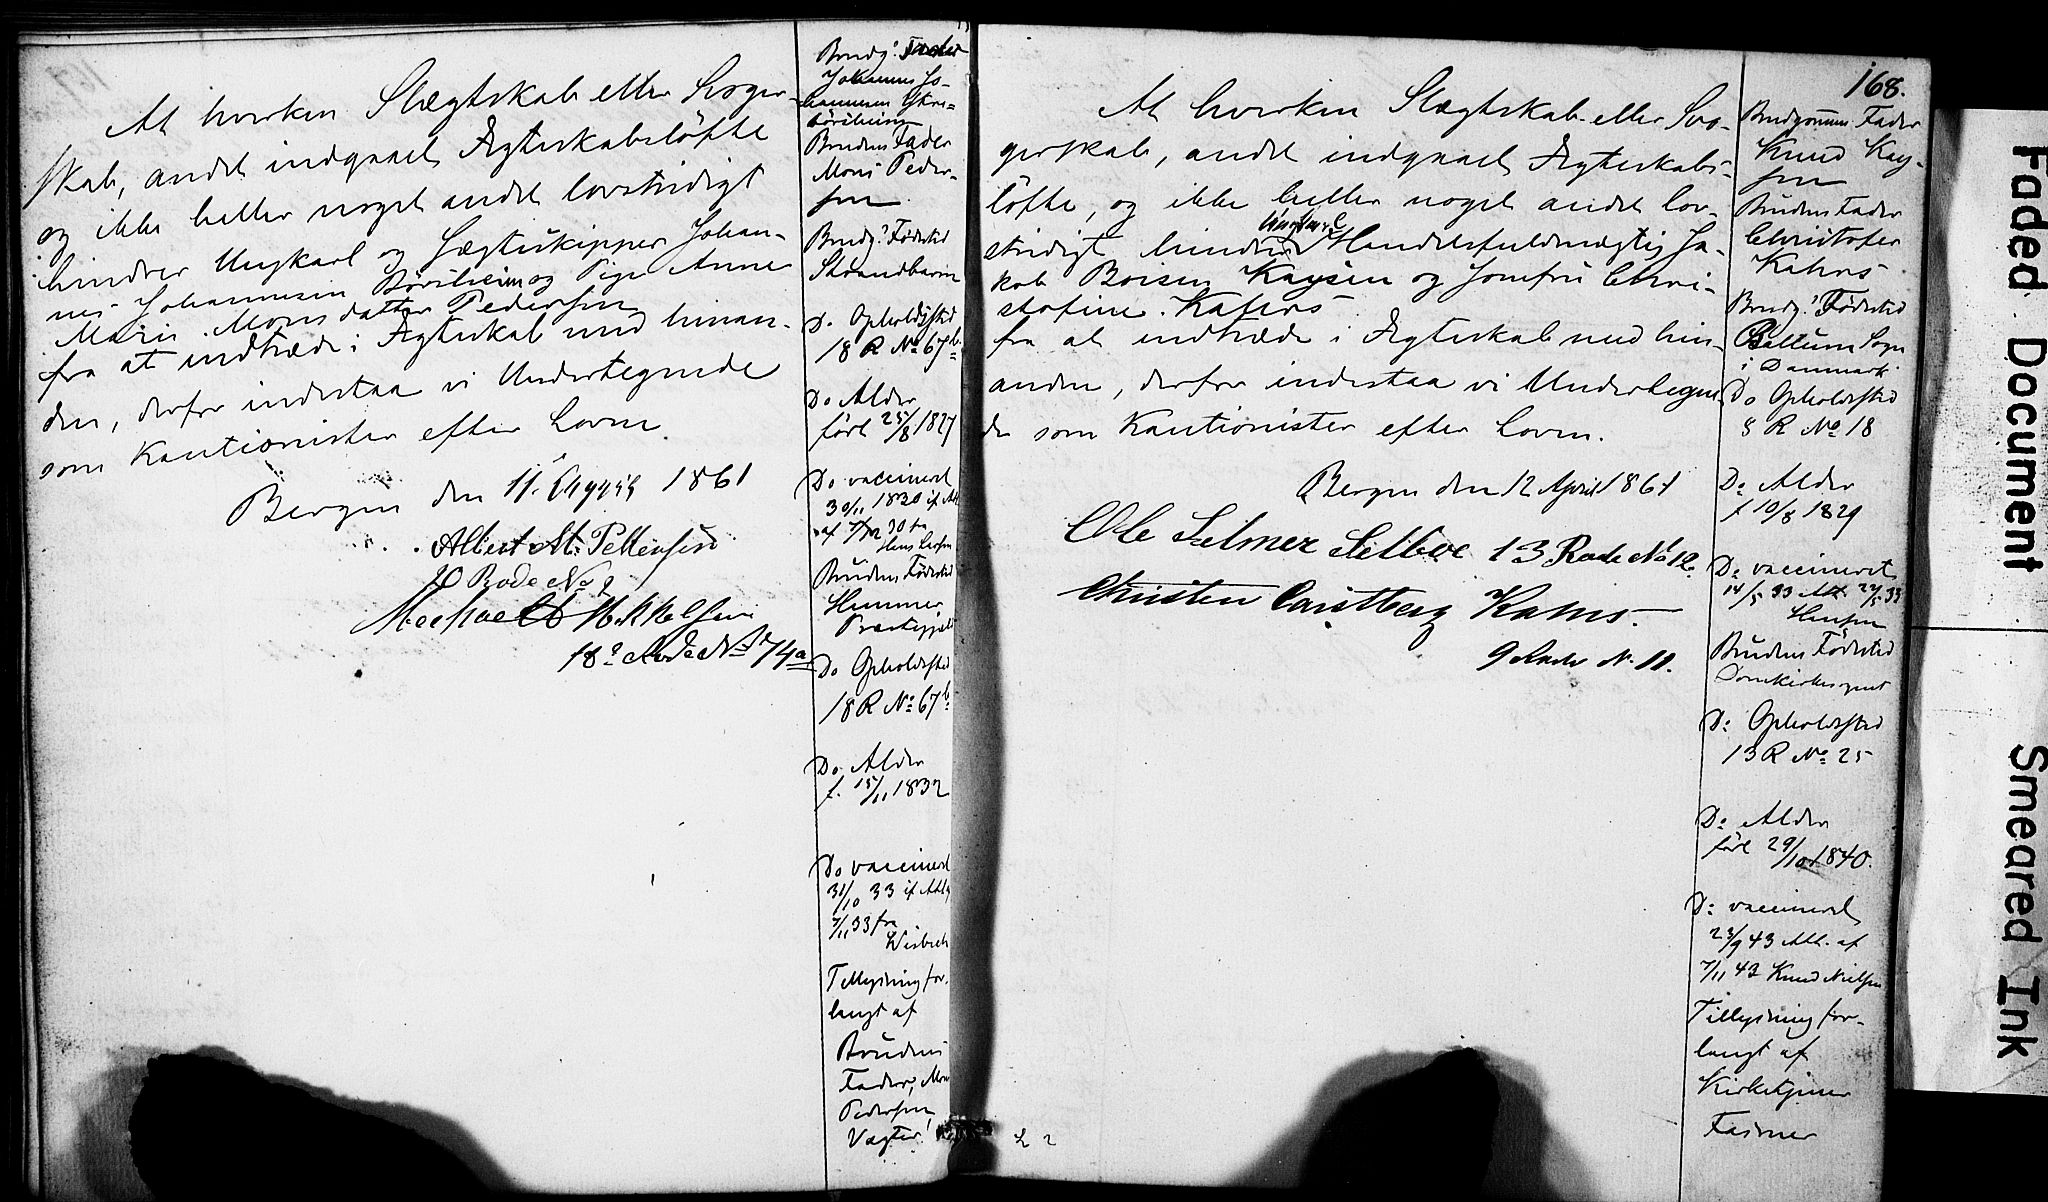 At hverken Slægtskab eller Svoger-
skab, andet indgaaet Ægteskabsløfte
og ikke heller noget andet lovstridigt
hindrer Ungkarl og Jægteskipper Johan-
nes Johannesen Børsheim og Pige Anne
Marie Monsdatter Pedersen
fra at indtræde i Ægteskab med hinan-
den, derfor indestaa vi Undertegnede
som Kautionister efter Loven.
Bergen den 11. 1861
Albert M. Pettersen
20 Rode No 9
Mikkelsen
18de Rode No 74a
Brudg: Fader
Johannes Jo-
hannesen
Brudens Fader
Mons Peder-
sen
Brudg: Fødested
Strandbarm
Do Opholdssted
18 R No 67b
Do Alder
født 25/8 1827
Do vaccineret
30/11 1830 if Att
af 7/12 30 fra
Brudens Fødested
Hammer
Præstegjeld
Do Opholdssted
18 R No 67b
Do Alder
f. 15/11 1832
Do vaccineret
31/10 33 if Att
7/11 33 fra
Wisbech
Tillysning for-
langt af
Brudens
Fader, Mons
Pedersen,
Vægter!
168.
At hverken Slægtskab eller Svo-
gerskab, andet indgaaet Ægteskabs-
løfte, og ikke heller noget andet lov-
stridigt hindrer Ungkarl Handelsfuldmægtig Ja-
kob Boisen Kaysen og Jomfru Chri-
stofine Kahrs
fra at indtræde i Ægteskab med hin-
anden, derfor indestaa vi Undertegne-
de som Kautionister efter Loven.
Bergen den 12 April 1861
Ole Selmer Selboe 13 Rode No 12.
Christen Carstberg Kahrs.
9 Rode N. 11.
Brudgommens Fader
Knud Kay-
sen
Brudens Fader
Christofer
Kahrs
Brudg: Fødested
Ballum Sogn
i Danmark
Do Opholdssted
8 R No 18
Do Alder
f 10/8 1829
Do vaccineret
14/5 33 Att 22/5 33
Hansen
Brudens Fødested
Domkirkesognet
Do Opholdssted
13 R No 25
Do Alder
født 29/10 1840.
Do vaccineret
23/9 43 Att. af
7/11 43 Knud Nielsen
Tillysning for-
langt af
Kirketjener
Fasmer
Faded Document
Smeared Ink